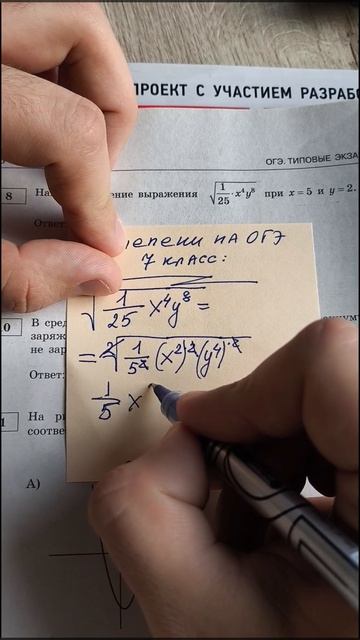 ПРОЕКТ С УЧАСТИЕМ РАЗРАБО
ОГЭ. ТИПОВЫЕ ЭКЗА
8 На ение выражения √(1/25 · x⁴y⁸) при x = 5 и y = 2.
Ответ
епени на ОГЭ
7 класс:
√(1/25 x⁴y⁸) =
= ²√(1/5² (x²)·² (y⁴)·²)
1/5 x
0 В сред
заряж
не зар
Ответ:
1 На ри
соотве
А)